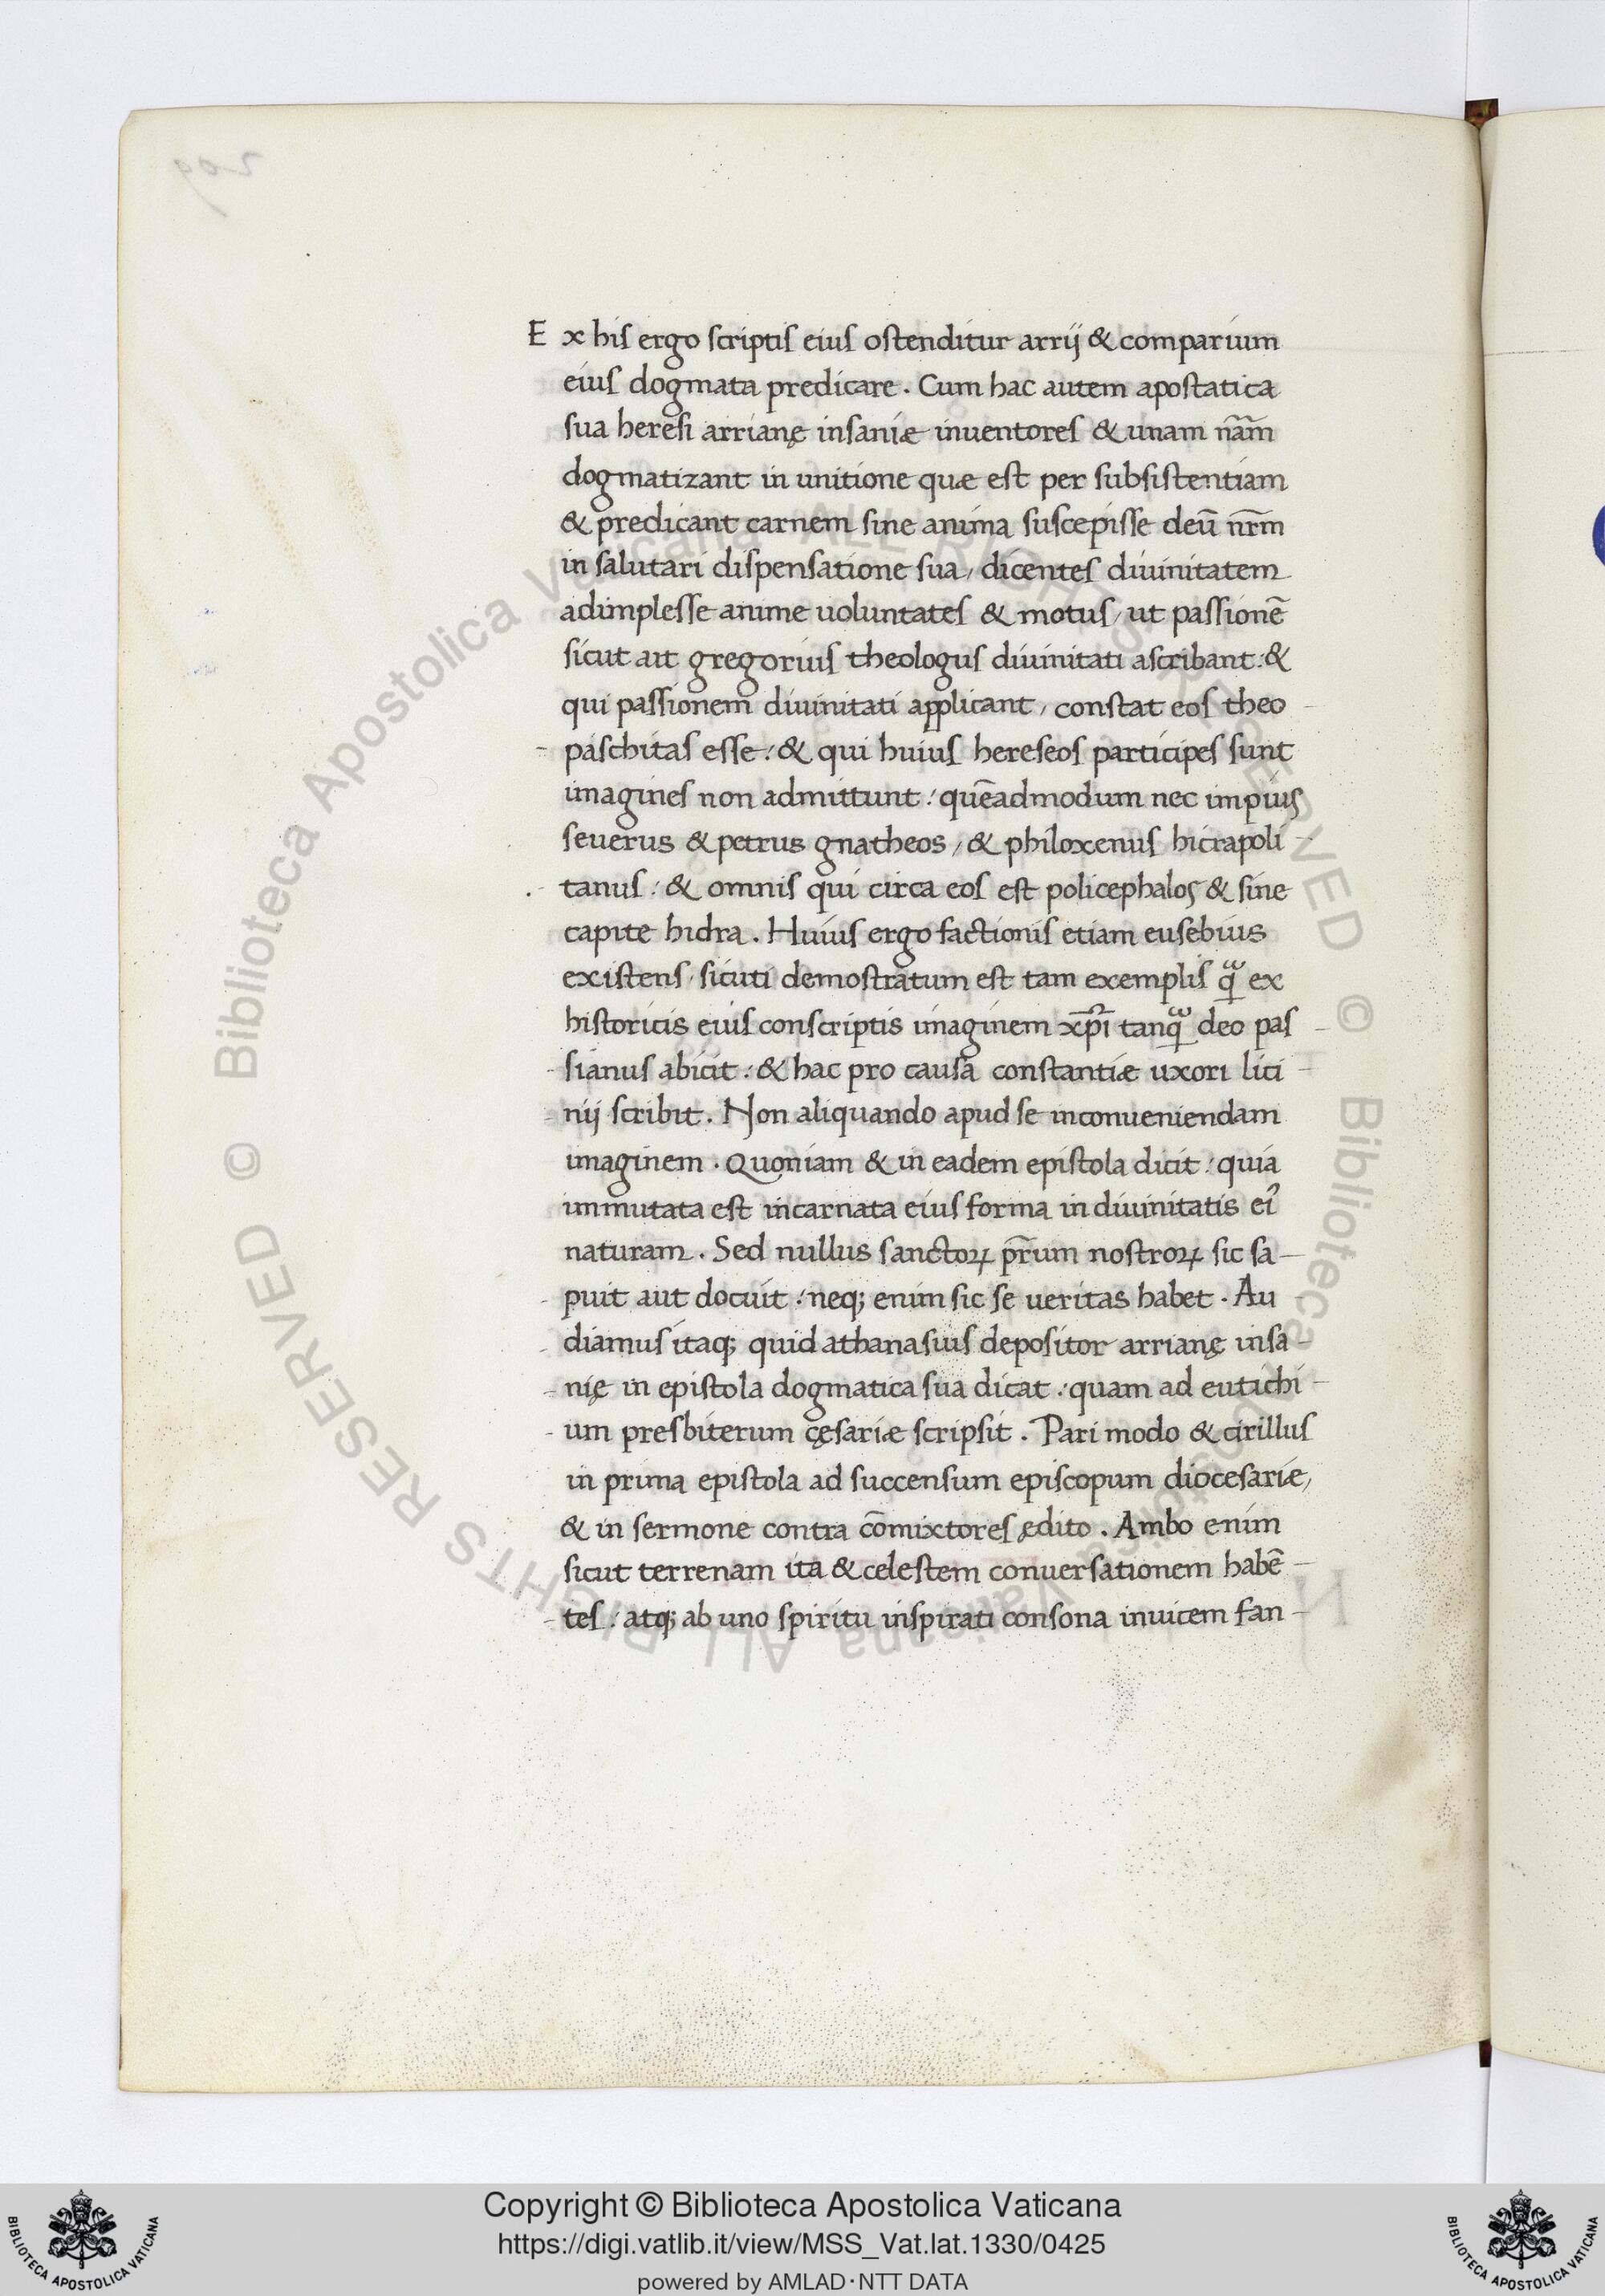 Ex his ergo scriptis eius ostenditur arrij & comparium
eius dogmata predicare. Cum hac autem apostatica
sua heresi arrianę insaniæ inuentores & unam nãm
dogmatizant in unitione quæ est per subsistentiam
& predicant carnem sine anima suscepisse deũ nr̃m
in salutari dispensatione sua, dicentes diuinitatem
adimplesse anime uoluntates & motus, ut passionẽ
sicut ait gregorius theologus diuinitati ascribant: &
qui passionem diuinitati applicant, constat eos theo-
-paschitas esse: & qui huius hereseos participes sunt
imagines non admittunt: quẽadmodum nec impius
seuerus & petrus gnatheos, & philoxenus hierapoli-
-tanus: & omnis qui circa eos est policephalos & sine
capite hidra. Huius ergo factionis etiam eusebius
existens, sicuti demostratum est tam exemplis qᷓ ex
historicis eius conscriptis imaginem xp̃i tanqᷓ deo pas-
-sianus abicit: & hac pro causa constantiæ uxori lici-
-nij scribit. Non aliquando apud se inconueniendam
imaginem. Quoniam & in eadem epistola dicit: quia
immutata est incarnata eius forma in diuinitatis eiꝰ
naturam. Sed nullus sanctoꝝ pr̃um nostroꝝ sic sa-
-puit aut docuit: neq; enim sic se ueritas habet. Au-
-diamus itaq; quid athanasius depositor arrianę insa-
-nię in epistola dogmatica sua dicat: quam ad eutichi-
-um presbiterum cęsariæ scripsit. Pari modo & cirillus
in prima epistola ad succensum episcopum diocesariæ,
& in sermone contra cõmixtores ędito. Ambo enim
sicut terrenam ita & celestem conuersationem habẽ-
-tes: atq; ab uno spiritu inspirati consona inuicem fan-
209
© Biblioteca Apostolica Vaticana ALL RIGHTS RESERVED © Biblioteca Apostolica Vaticana ALL RIGHTS RESERVED
BIBLIOTECA APOSTOLICA VATICANA
Copyright © Biblioteca Apostolica Vaticana
https://digi.vatlib.it/view/MSS_Vat.lat.1330/0425
powered by AMLAD·NTT DATA
BIBLIOTECA APOSTOLICA VATICANA